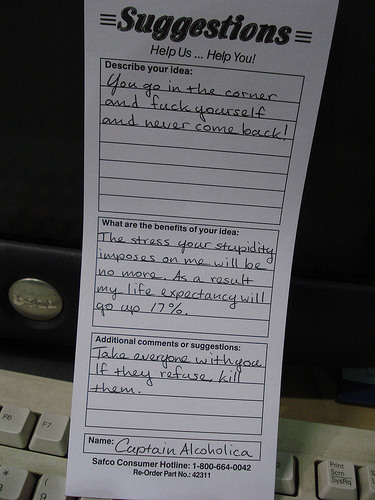 Suggestions
Help Us ... Help You!
Describe your idea:
You go in the corner
and fuck yourself
and never come back!
What are the benefits of your idea:
The stress your stupidity
imposes on me will be
no more. As a result
my life expectancy will
go up 17%.
Additional comments or suggestions:
Take everyone with you
If they refuse, kill
them.
Name: Captain Alcoholica
Safco Consumer Hotline: 1-800-664-0042
Re-Order Part No.: 42311
F6
F7
*
(
Print
Scrn
SysRq